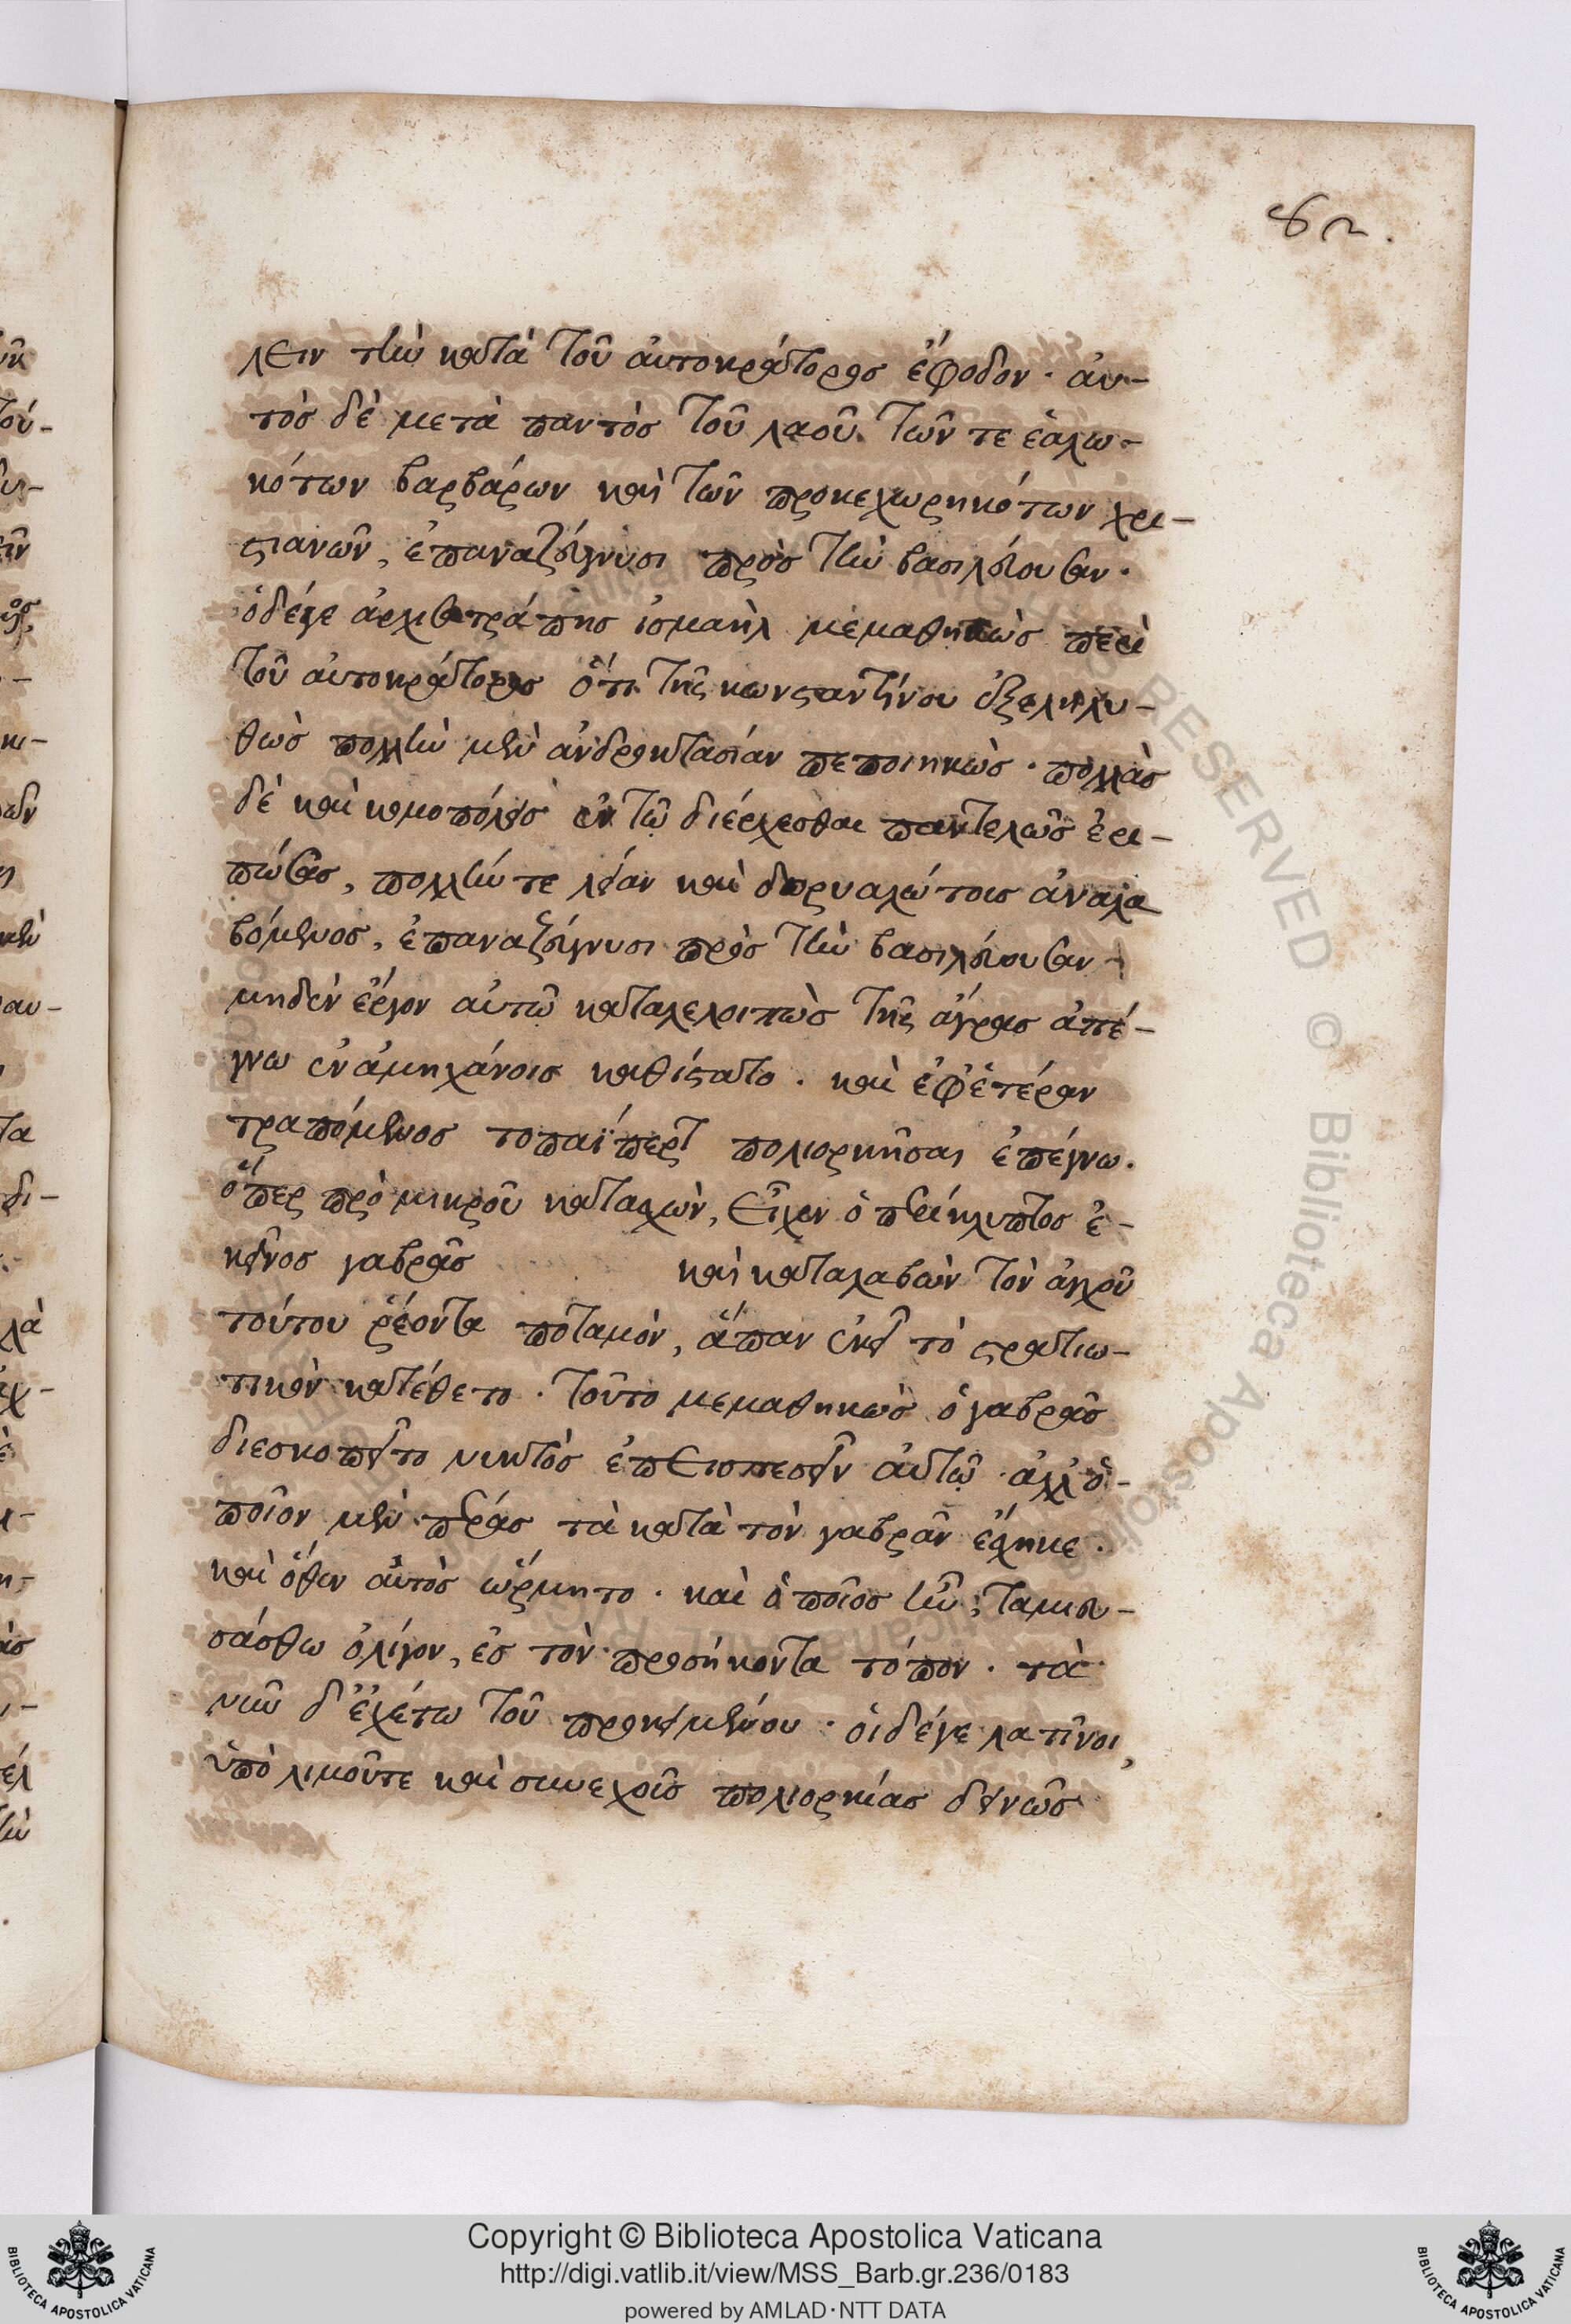 82.
λειν τὴν κατὰ τοῦ αὐτοκράτορος ἔφοδον · αὐ-
τὸς δὲ μετὰ παντὸς τοῦ λαοῦ. τῶν τε ἑαλω-
κότων βαρβάρων καὶ τῶν προκεχωρηκότων χρι-
στιανῶν, ἐπαναζεύγνυσι πρὸς τὴν βασιλεύουσαν.
ὁ δέγε ἀρχισατράπης ἰσμαὴλ μεμαθηκὼς περὶ
τοῦ αὐτοκράτορος ὅτι τῆς κωνσταντίνου ἐξεληλυ-
θὼς πολλὴν μὲν ἀνδροκτασίαν πεποιηκὼς · πολλὰς
δὲ καὶ κωμοπόλεις ἐν τῷ διέρχεσθαι παντελῶς ἐρι-
πώσας, πολλήν τε λείαν καὶ δορυαλώτους ἀναλα
βόμενος, ἐπαναζεύγνυσι πρὸς τὴν βασιλεύουσαν
μηδὲν ἔργον αὐτῷ καταλελοιπὼς τῆς ἄγρας ἀπέ-
γνω ἐν ἀμηχάνοις καθίστατο · καὶ ἐφ' ἑτέραν
τραπόμενος τὸ παϊπερτ πολιορκῆσαι ἐπέγνω.
ὅπερ πρὸ μικροῦ κατασχὼν, εἶχεν ὁ περίκλυτος ἐ-
κεῖνος γαβρᾶς καὶ καταλαβὼν τὸν ἀγχοῦ
τούτου ῥέοντα ποταμὸν, ἅπαν ἐκεῖ τὸ στρατιω-
τικὸν κατέθετο · τοῦτο μεμαθηκὼς ὁ γαβρᾶς
διεσκοπεῖτο νυκτὸς ἐπεισπεσεῖν αὐτῷ · ἀλλ' ὁ-
ποῖον μὲν πέρας τὰ κατὰ τὸν γαβρᾶν ἔσχηκε ·
καὶ ὅθεν αὐτὸς ὥρμητο · καὶ ὁποῖος ἦν, ταμιευ-
σάσθω ὀλίγον, ἐς τὸν προσήκοντα τόπον · τὰ
νῦν δ' ἐχέτω τοῦ προκειμένου · οἱ δέγε λατῖνοι,
ὑπὸ λιμοῦτε καὶ συνεχοῦς πολιορκίας δεινῶς
Copyright © Biblioteca Apostolica Vaticana
http://digi.vatlib.it/view/MSS_Barb.gr.236/0183
powered by AMLAD·NTT DATA